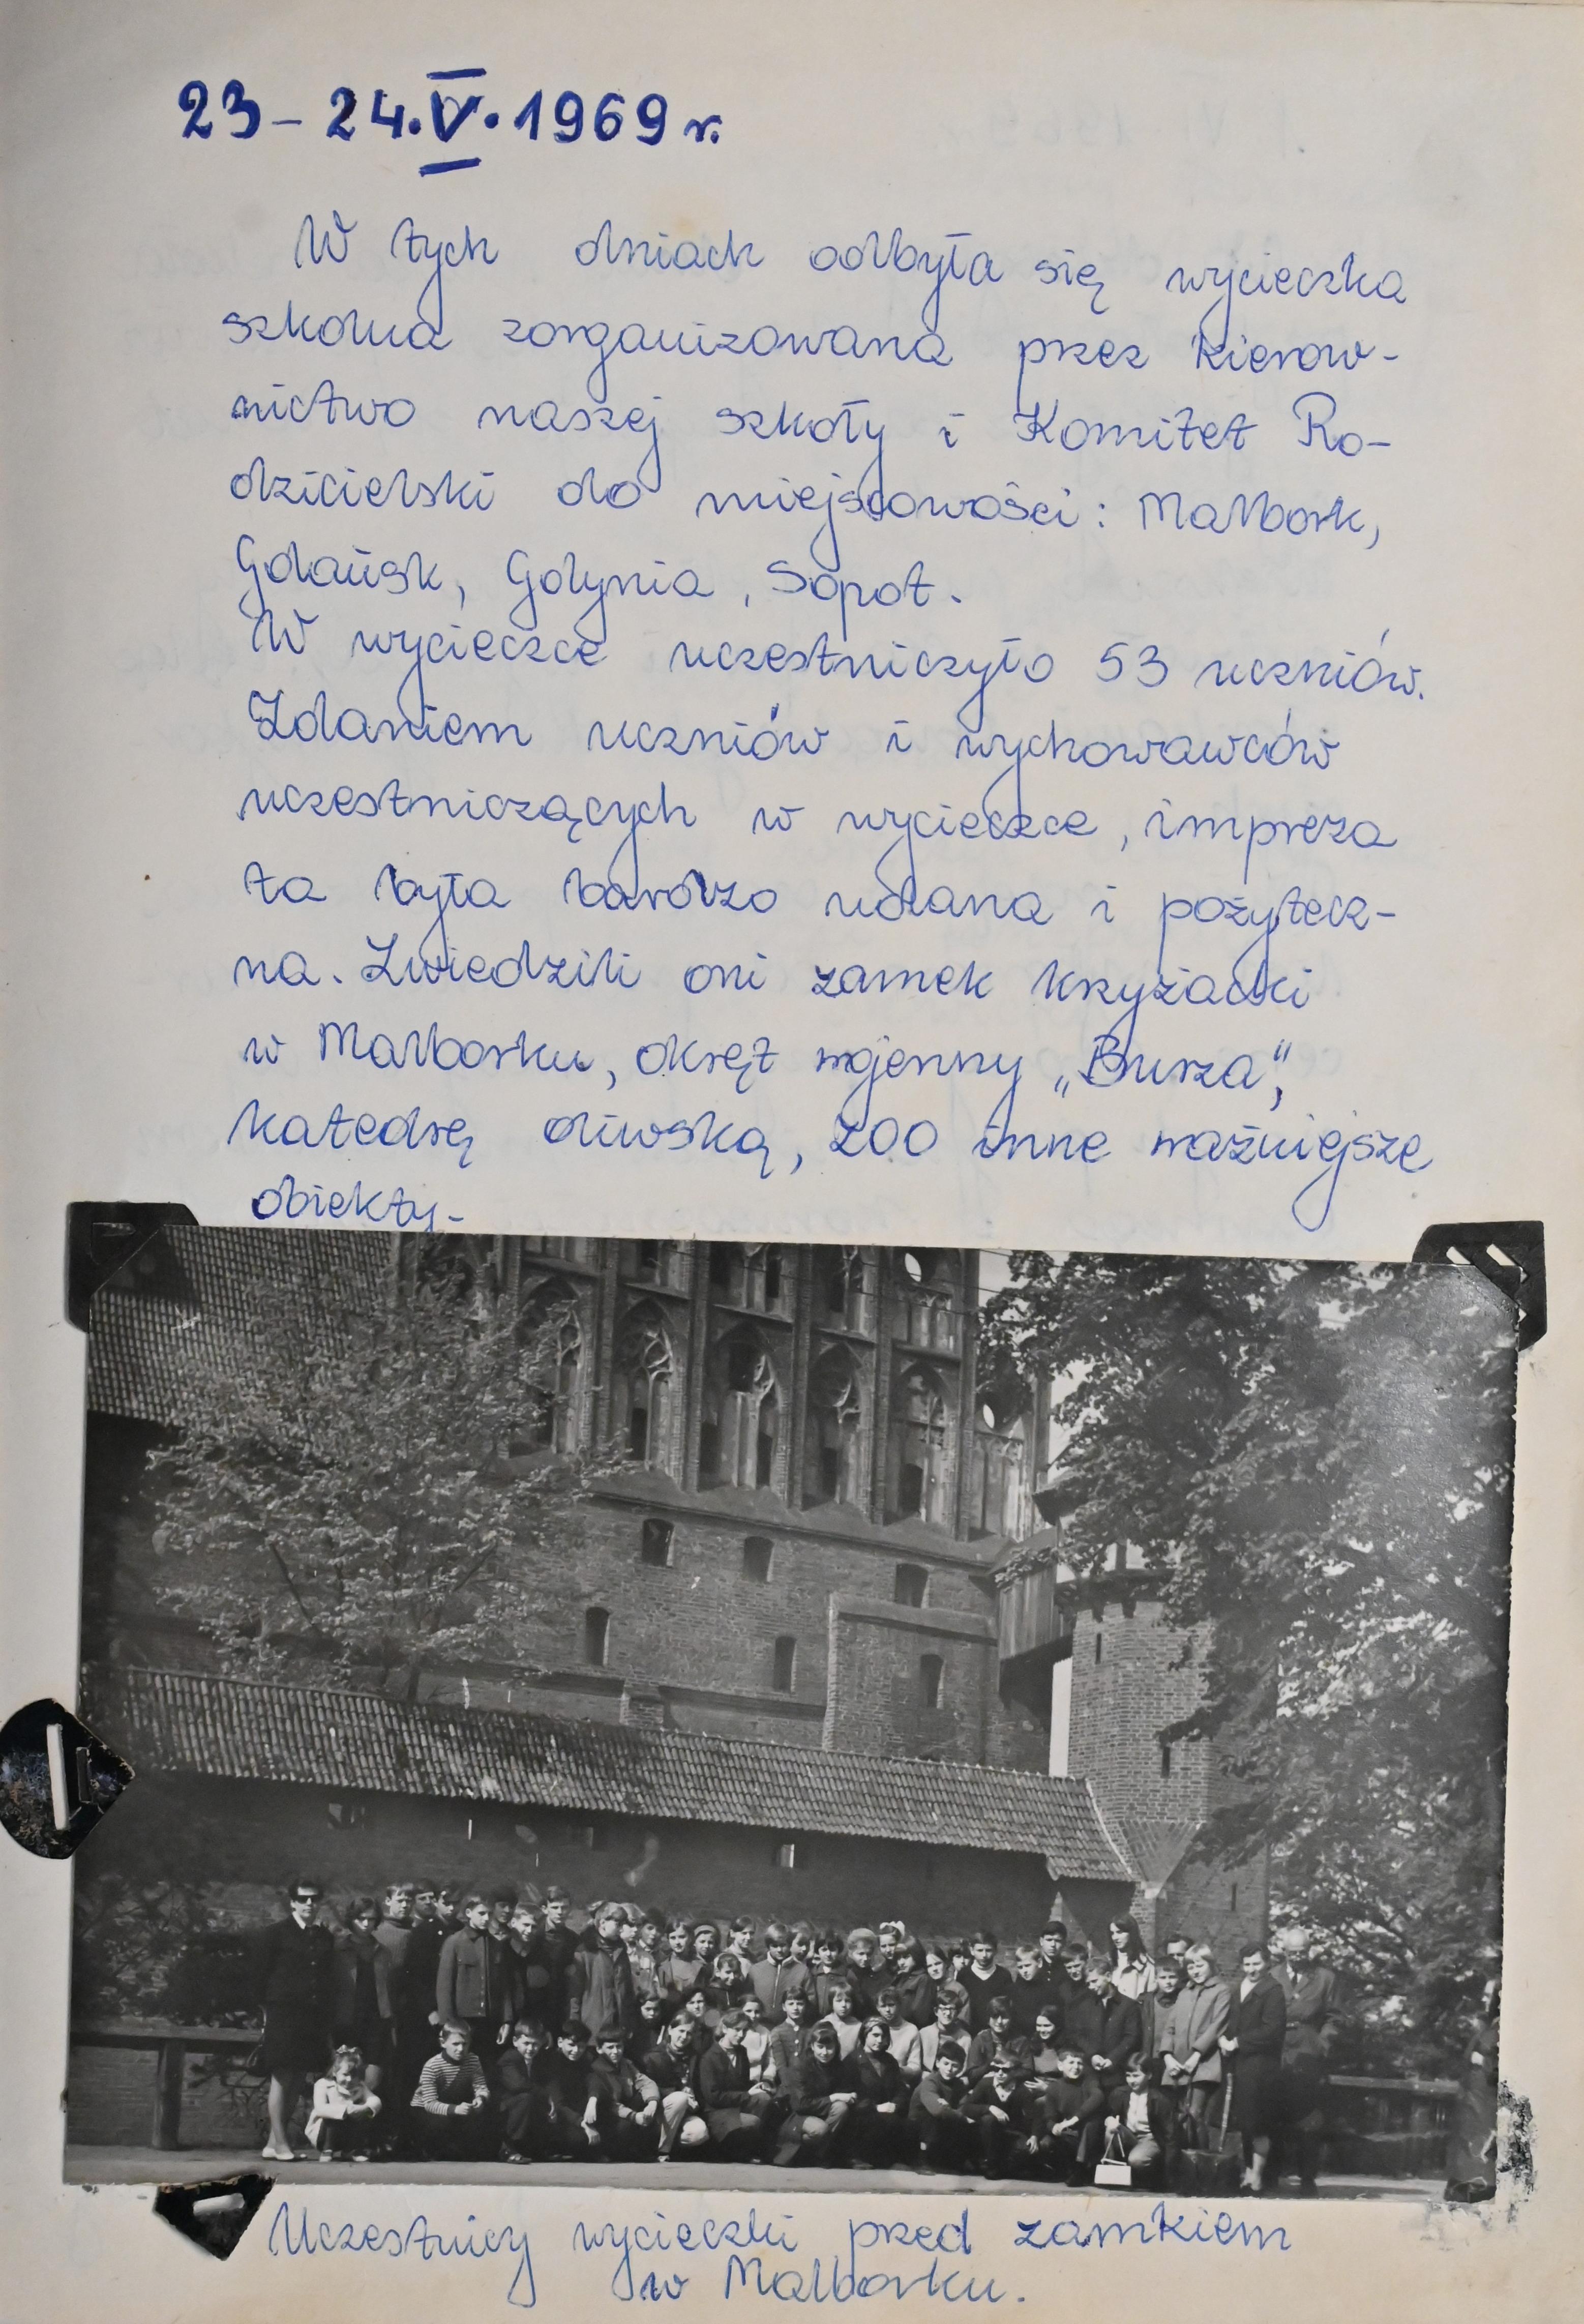 23-24.V.1969 r.
W tych dniach odbyła się wycieczka
szkolna zorganizowana przez kierow-
nictwo naszej szkoły i Komitet Ro-
dzicielski do miejscowości: Malbork,
Gdańsk, Gdynia, Sopot.
W wycieczce uczestniczyło 53 uczniów.
Zdaniem uczniów i wychowawców
uczestniczących w wycieczce, impreza
ta była bardzo udana i pożytecz-
na. Zwiedzili oni zamek krzyżacki
w Malborku, okręt wojenny „Burza",
katedrę oliwską, ZOO inne ważniejsze
obiekty.
Uczestnicy wycieczki przed zamkiem
w Malborku.